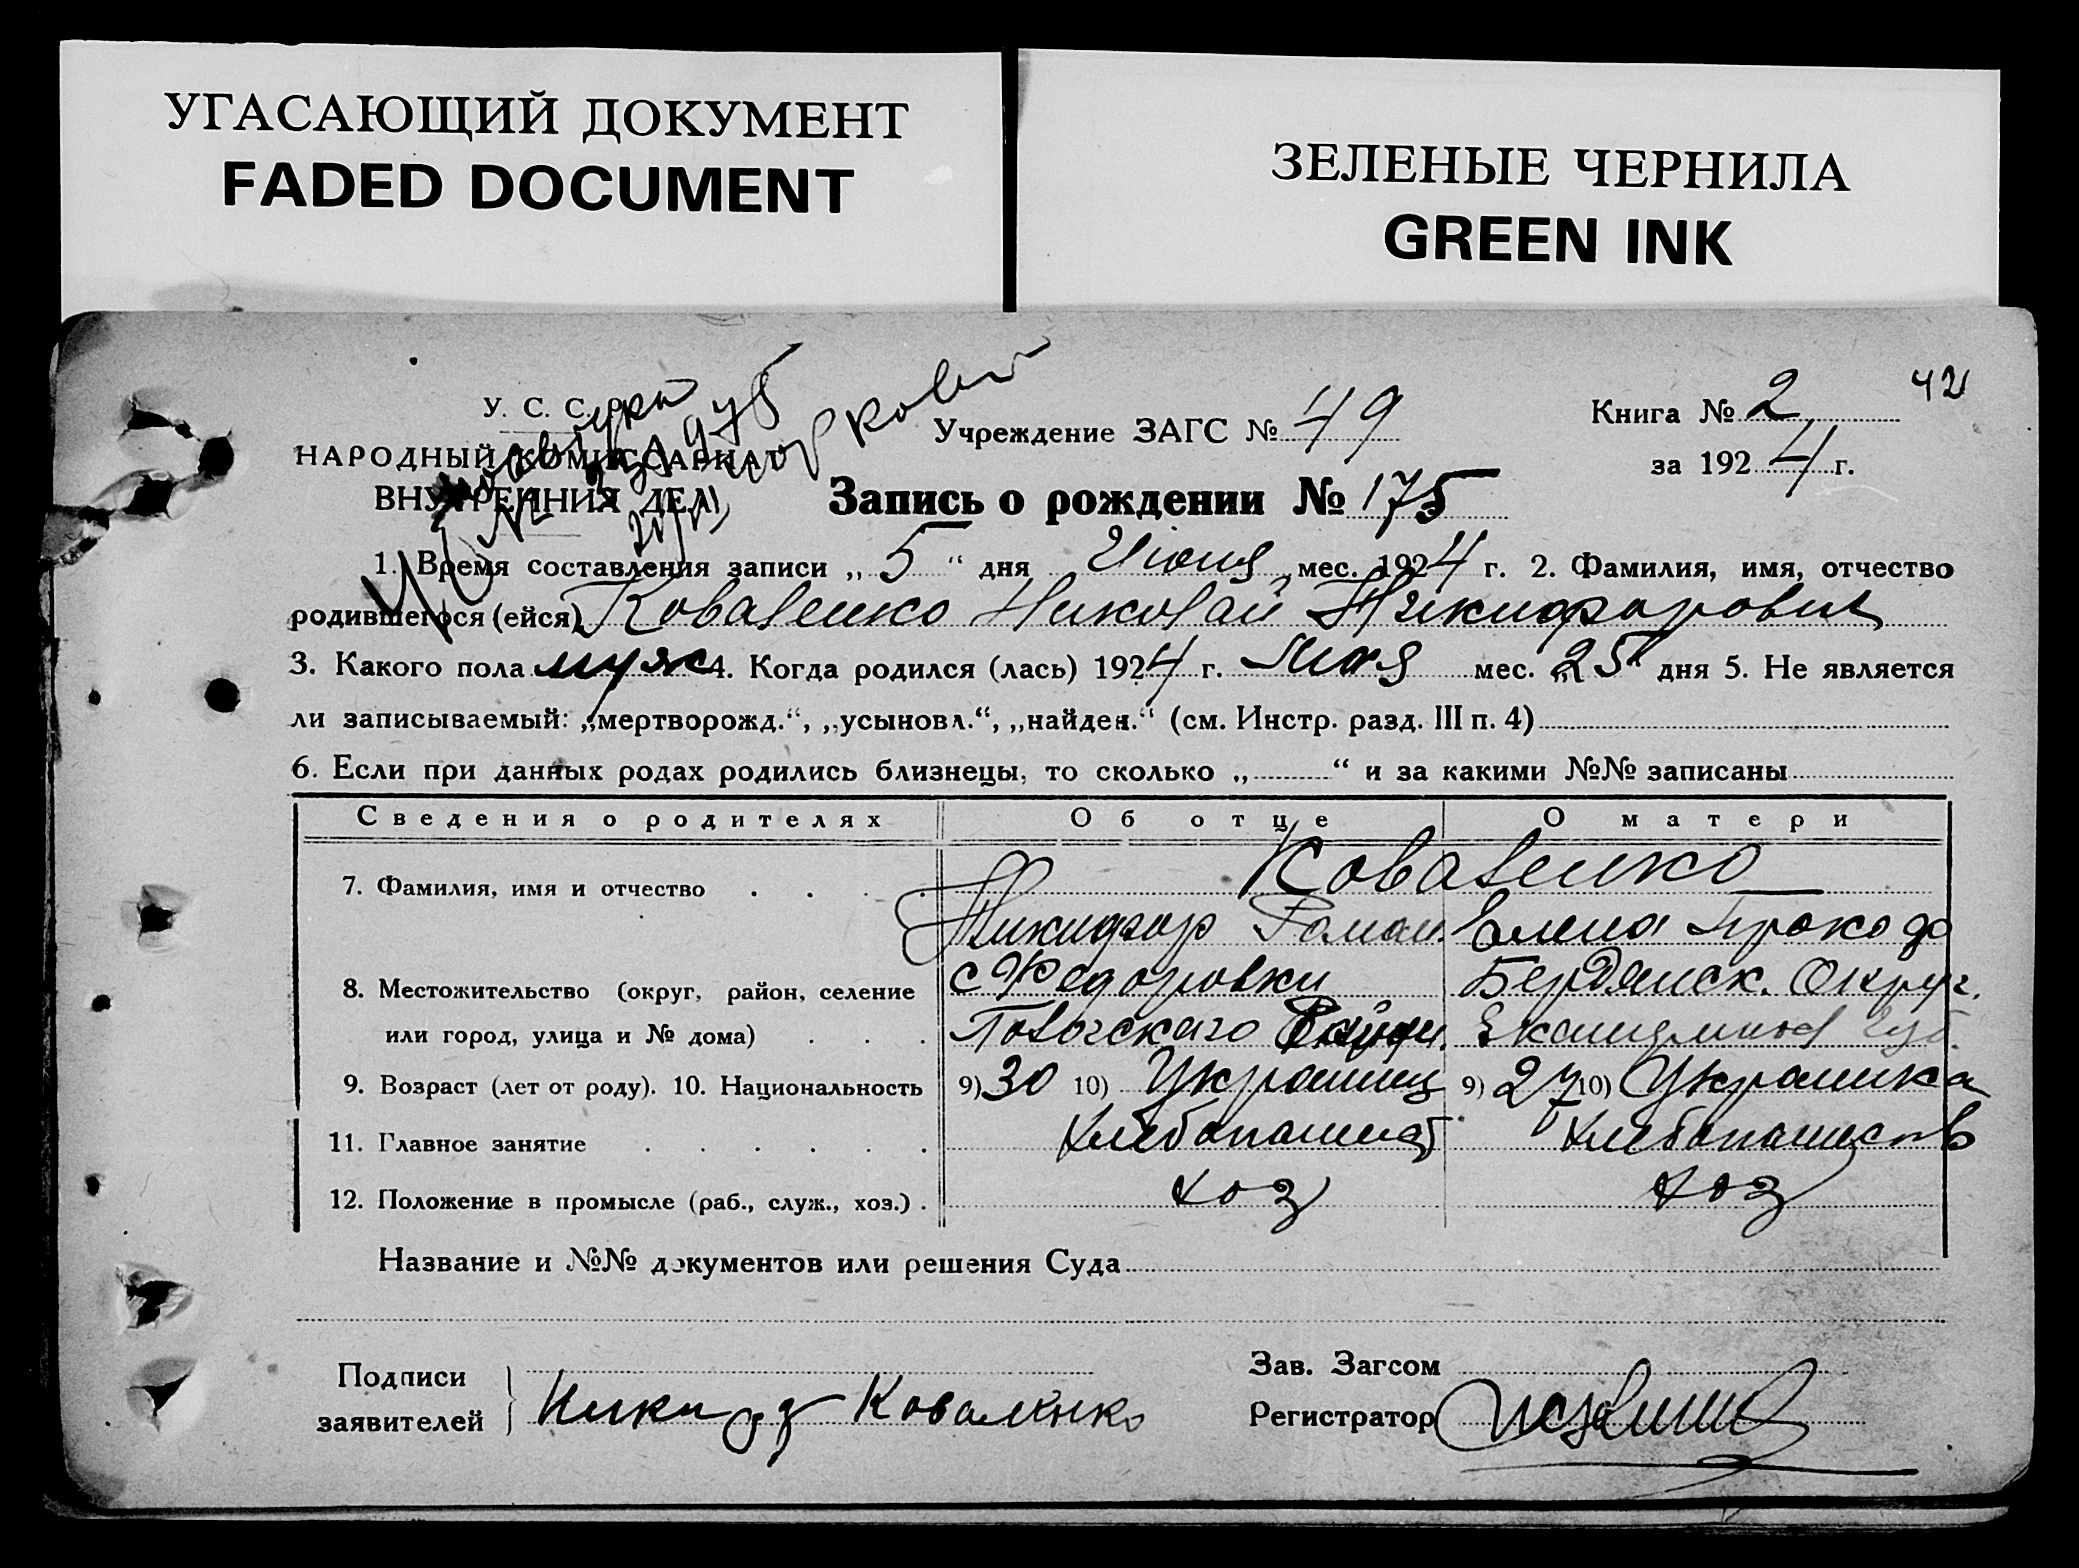 УГАСАЮЩИЙ ДОКУМЕНТ
FADED DOCUMENT
ЗЕЛЕНЫЕ ЧЕРНИЛА
GREEN INK
42
У. С. С. Р.
НАРОДНЫЙ КОМИССАРИАТ
ВНУТРЕННИХ ДЕЛ
Учреждение ЗАГС № 49
Книга № 2
за 1924 г.
Запись о рождении № 175
1. Время составления записи „ 5 “ дня Июня мес. 1924 г. 2. Фамилия, имя, отчество
родившегося (ейся) Коваленко Николай Никифорович
3. Какого пола муж 4. Когда родился (лась) 1924 г. Мая мес. „25“ дня 5. Не является
ли записываемый: „мертворожд.“, „усыновл.“, „найден.“ (см. Инстр. разд. III п. 4)
6. Если при данных родах родились близнецы, то сколько „ “ и за какими №№ записаны
Сведения о родителях Об отце О матери
7. Фамилия, имя и отчество . . . . Коваленко
Никифор Роман. Елена Прокофо
8. Местожительство (округ, район, селение с Федоровки Бердянск. Округ.
или город, улица и № дома) . . . Района.
9. Возраст (лет от роду). 10. Национальность 9) 30 10) Украинец 9) 27 10) Украинка
11. Главное занятие . . . . . . Хлебопашеств Хлебопашество
12. Положение в промысле (раб., служ., хоз.) . хоз хоз
Название и №№ документов или решения Суда
Подписи
заявителей Никиф Коваленко
Зав. Загсом
Регистратор